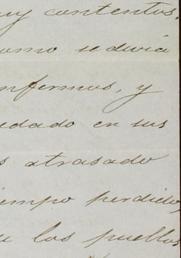 uy contentos,
omo se diria
nfermos, y
uedado en sus
s atrasado
iempo perdido,
e los pueblos